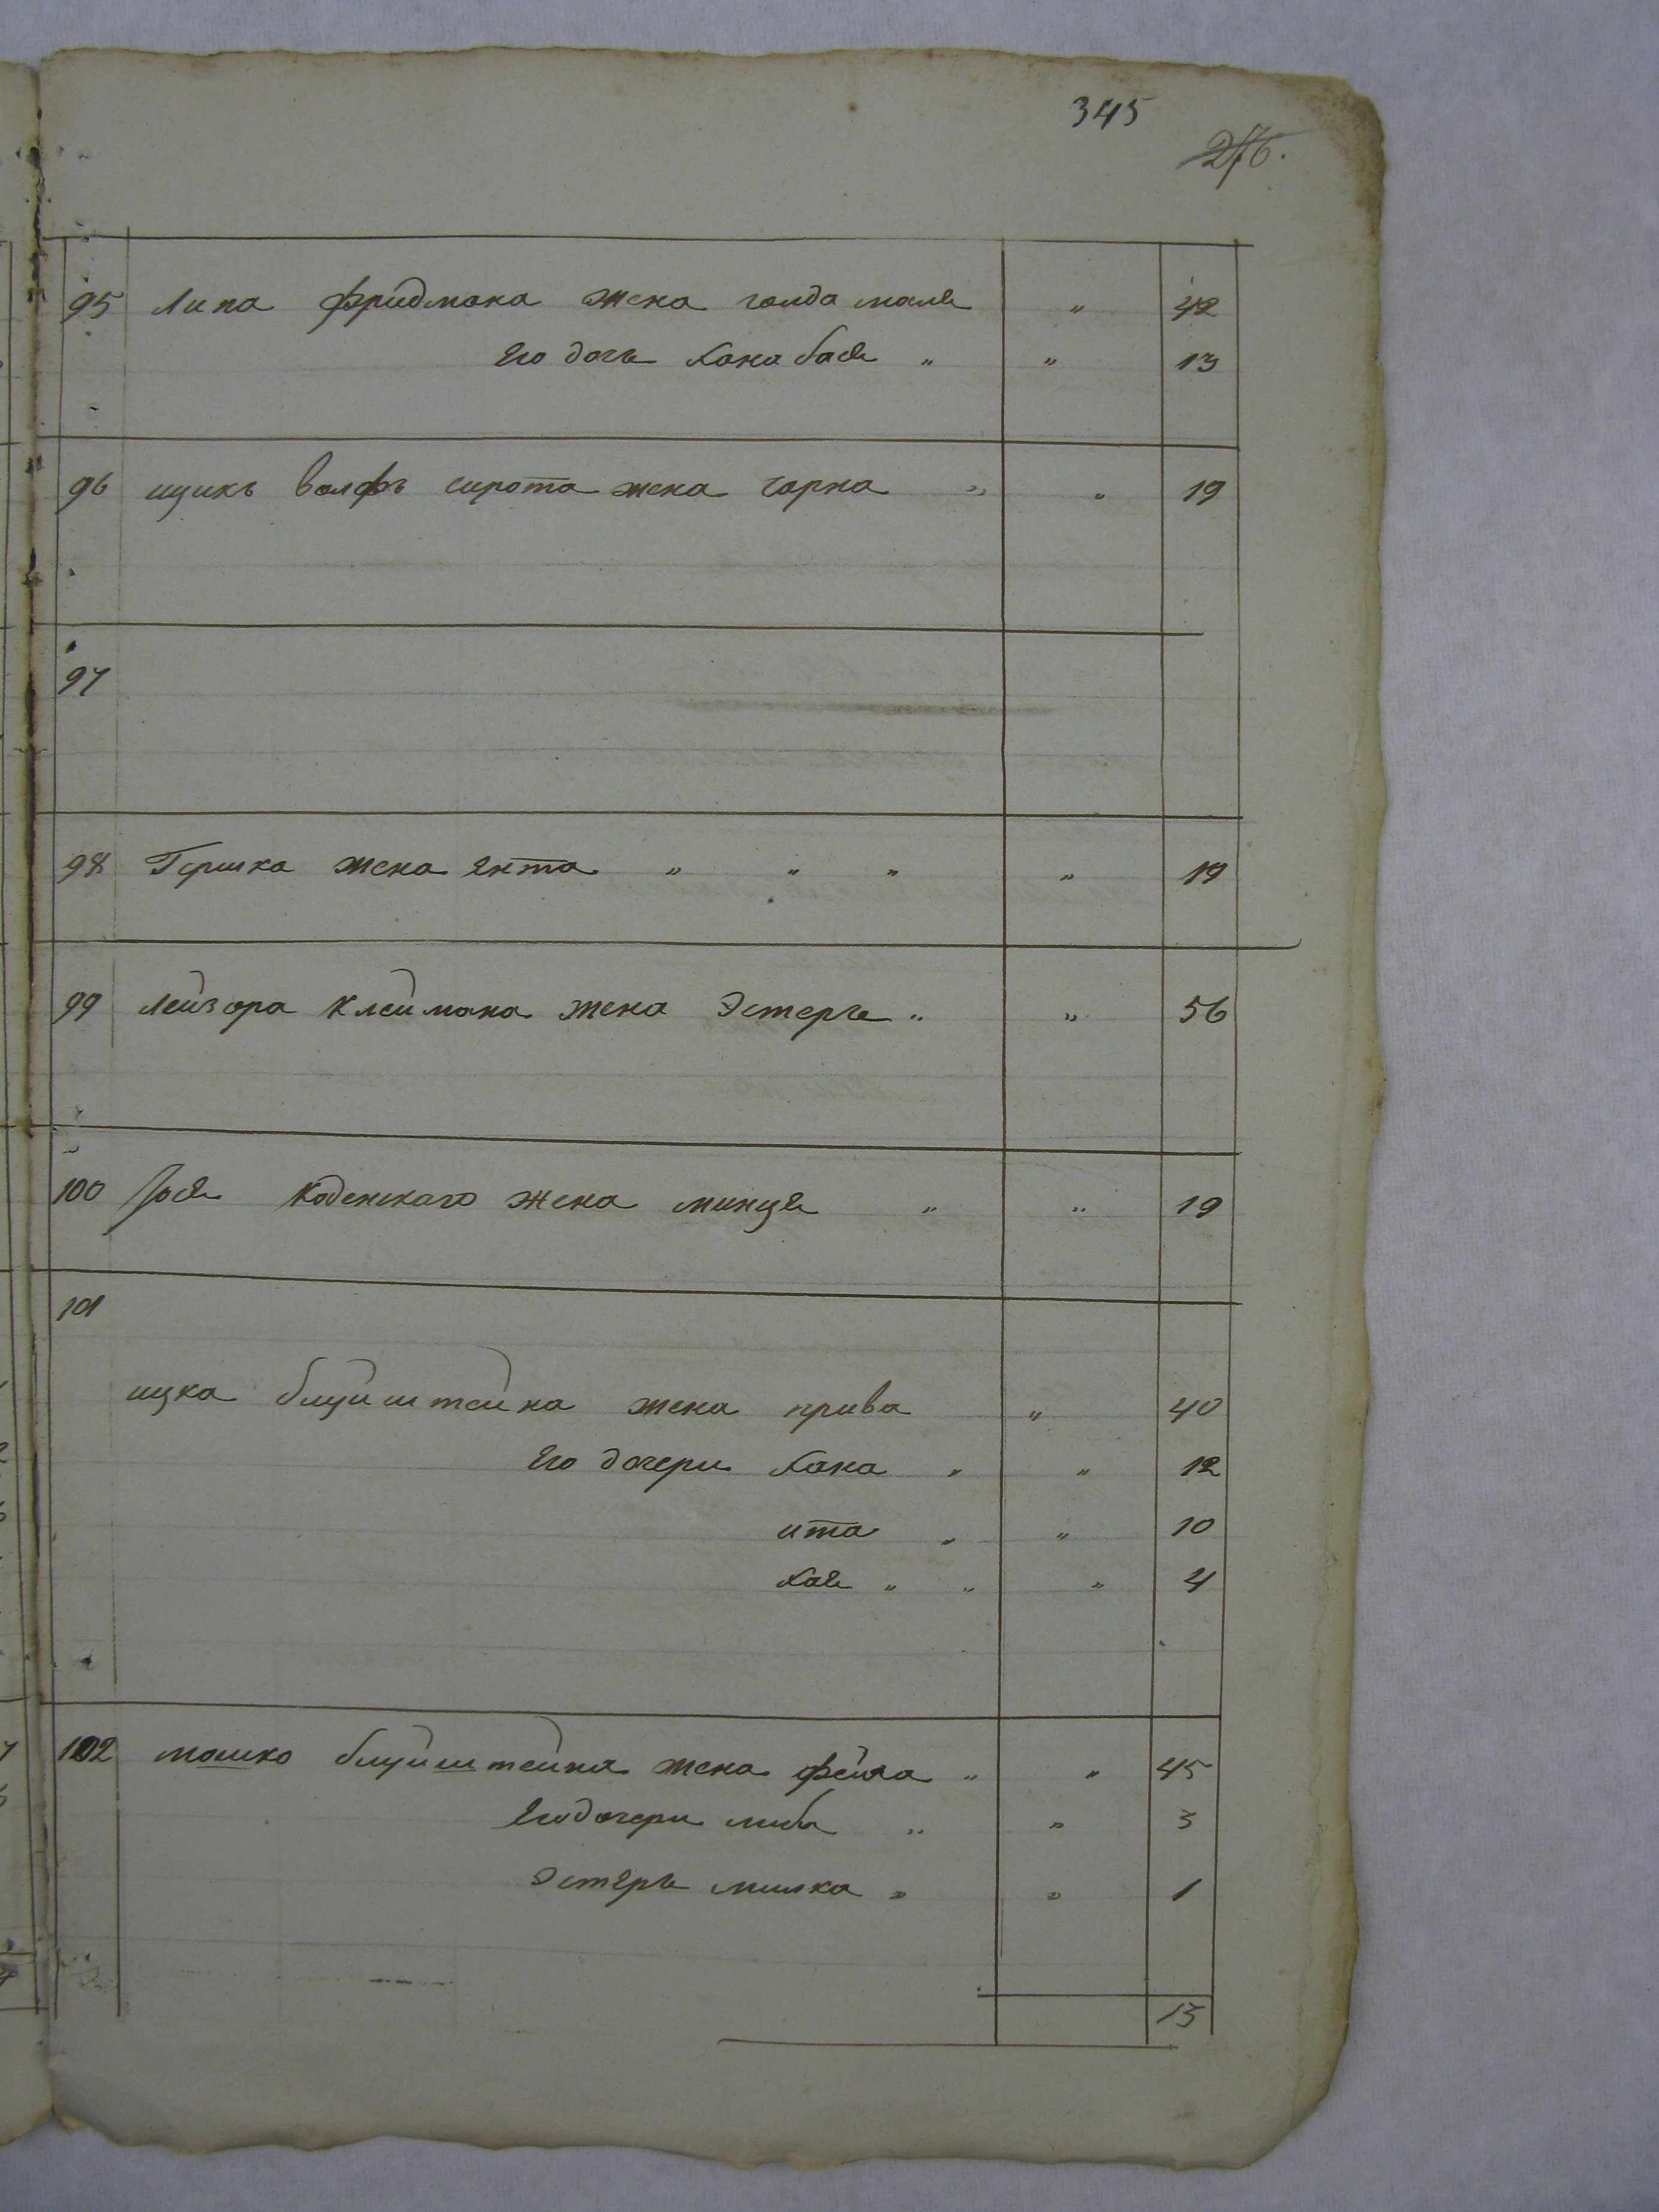 345
276.
95 Липа фридмана жена голда маля " 42
Его дочь Хана бася " " 13
96 ицикъ волфъ сирота жена чарна " " 19
97
98 Гершка жена Ента " " " " 19
99 лейзора клеймана жена Эстеръ " " 56
100 Иося Коденскаго жена минця " " 19
101
ицка блуйштейна жена прива " 40
Его дочери Хана " " 12
ита " " 10
Хая " " " 4
102 мошко блуйштейна жена фейга " " 45
Его дочери либа " " 3
Эстеръ милка " " 1
13